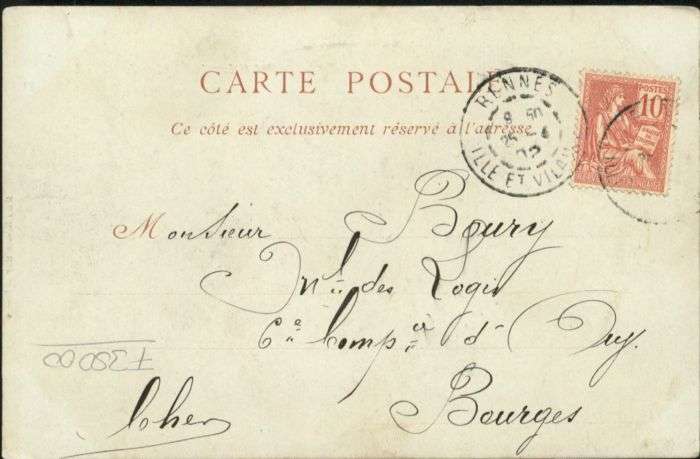 CARTE POSTALE
Ce côté est exclusivement réservé à l'adresse
RENNES
ILLE ET VILAINE
POSTES
10
Monsieur Boury
M.al des Logis
6e Comp.ie d'
Bourges
Cher
F3500